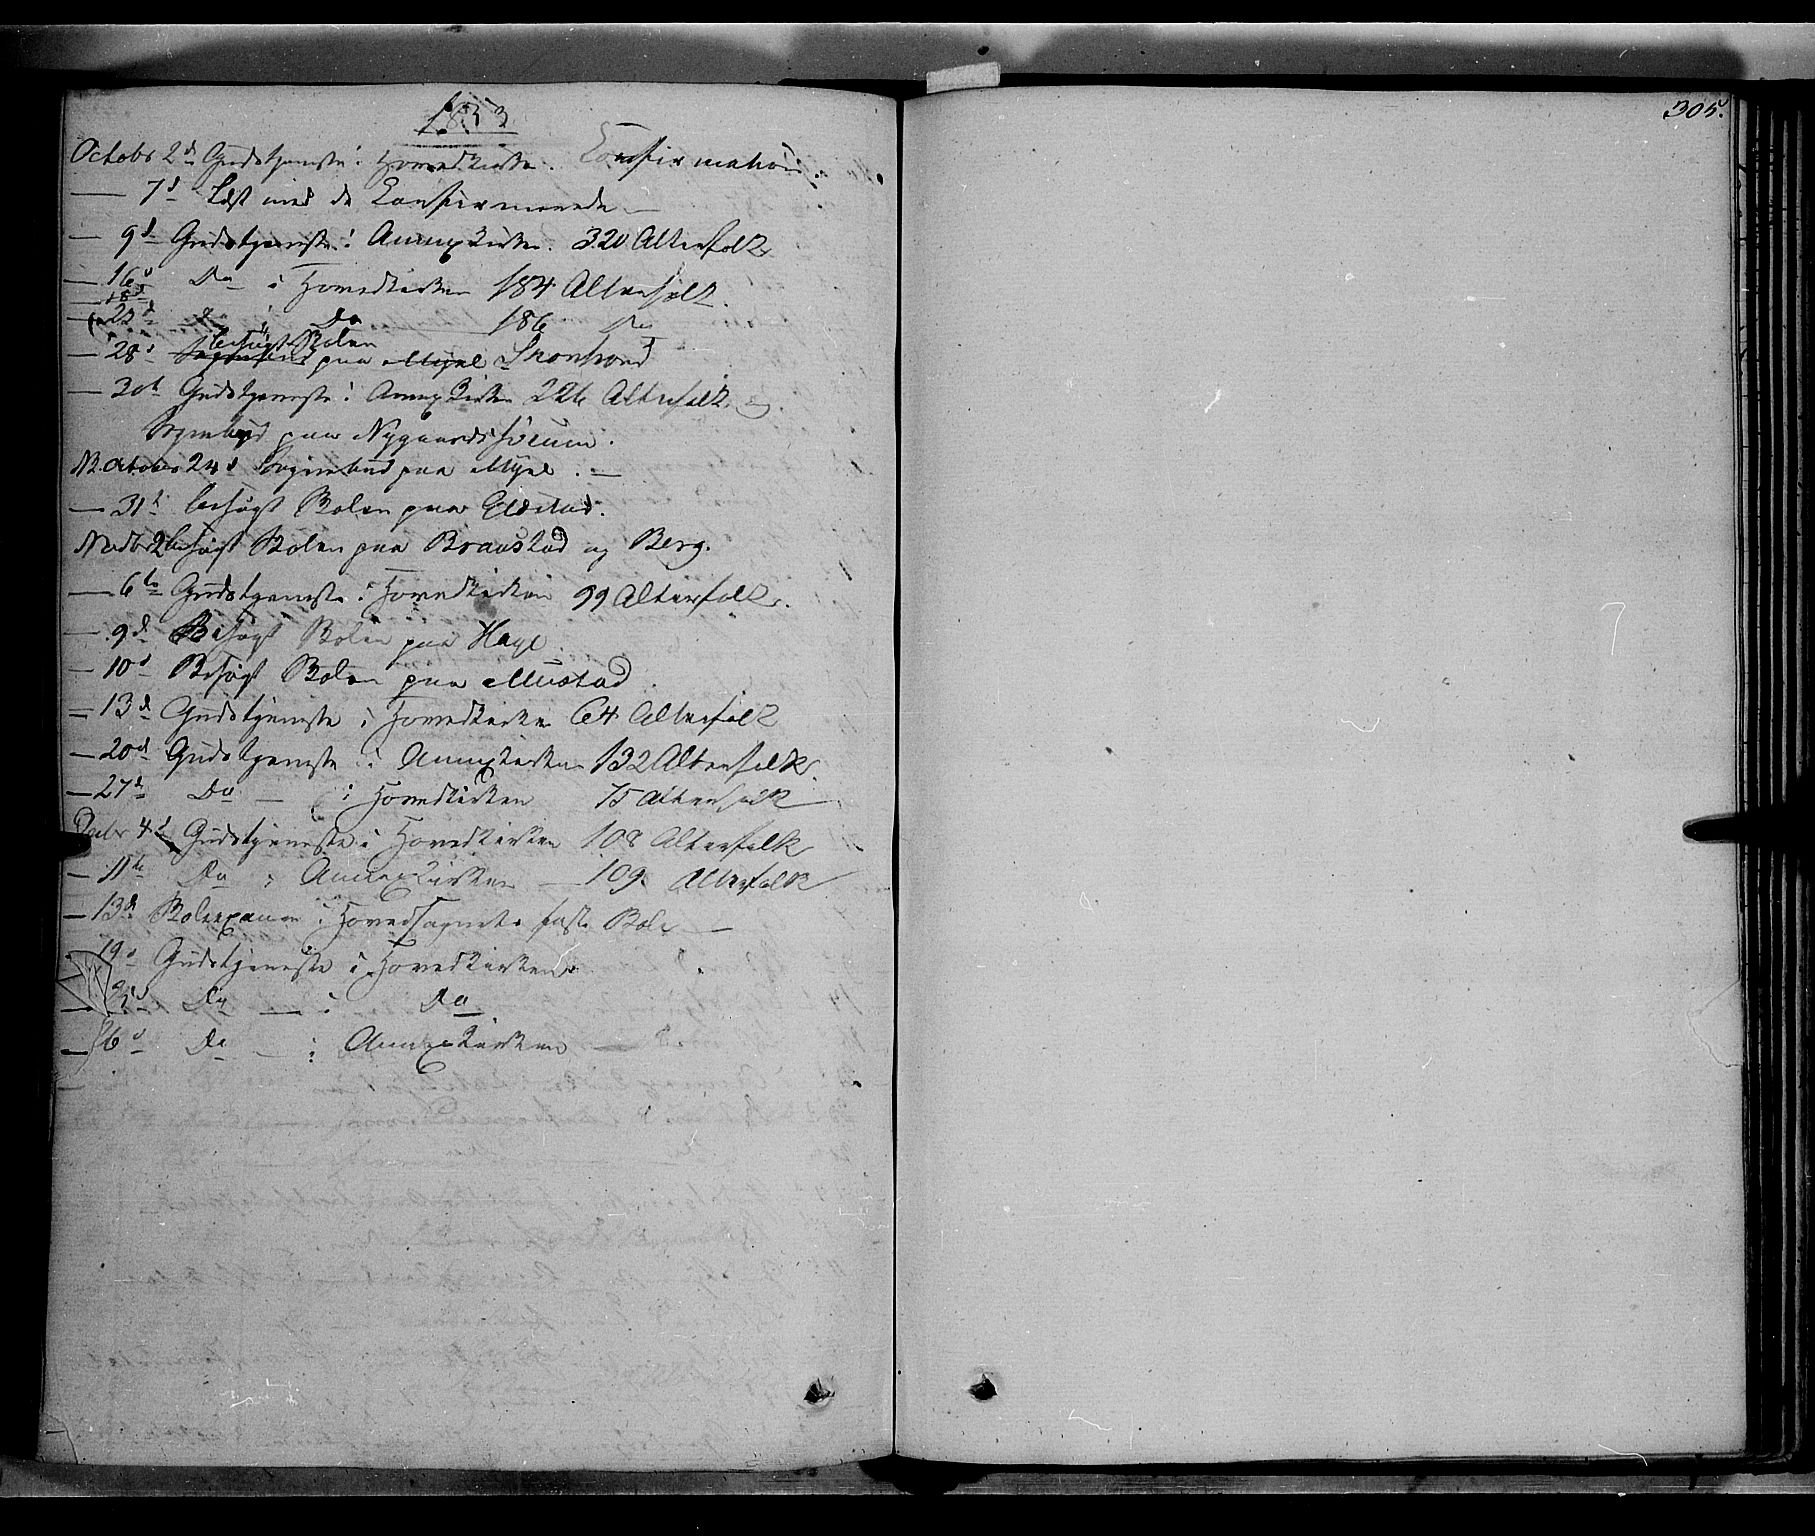 305.
1853
Octobr 2d Gudstjeneste i Hovedkirken. Confirmation.
— 7d Læst med de Confirmerede —
— 9d Gudstjeneste i Annexkirken. 320 Altersfolk
— 16d Do i Hovedkirken 184 Altersfolk.
— 18d
— 23d Do i Do 186 Do
besøgt Skolen
— 28d Sognebud paa Mynl Skonhovd
— 30t Gudstjeneste i Annexkirken 226 Altersfolk og
Sognebud paa Nygaards
NB. Octobr 24d Sognebud paa Mynl. —
— 31t besøgt Skolen paa Eldstad.
Novbr 2 besøgt Skolen paa Braastad og Berg.
— 6te Gudstjeneste i Hovedkirken 99 Altersfolk.
— 9d Besøgt Skolen paa Hage
— 10d Besøgt Skolen paa Mustad.
— 13d Gudstjeneste i Hovedkirken 64 Altersfolk
— 20d Gudstjeneste i Annexkirken 132 Altersfolk.
— 27d Do — i Hovedkirken 75 Altersfolk —
Decbr 4d Gudstjeneste i Hovedkirken 108 Altersfolk
— 11te Do i Annexkirken — 109. Altersfolk
— 13d Skolexamen i Hovedsognets faste Skole —
— 19d Gudstjeneste i Hovedkirken.
— 25d Do — i Do
— 26d Do — i Annexkirken —